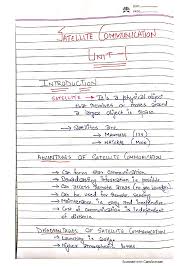 SATELLITE COMMUNICATION
UNIT-1
INTRODUCTION
SATELLITE → It's a physical object
that revolves or moves around
a larger object in space.
→ Satellites Are:
→ Manmade
→ Natural Moon
ADVANTAGES OF SATELLITE COMMUNICATION
→ Can form star communication
→ Broadcasting information is possible
→ Can access remote areas
→ Can be used for remote sensing
→ Maintenance is easy and inexpensive
→ Cost of communication is independent
of distance
DISADVANTAGES OF SATELLITE COMMUNICATION
→ Launching is costly
→ Higher losses
Scanned with CamScanner